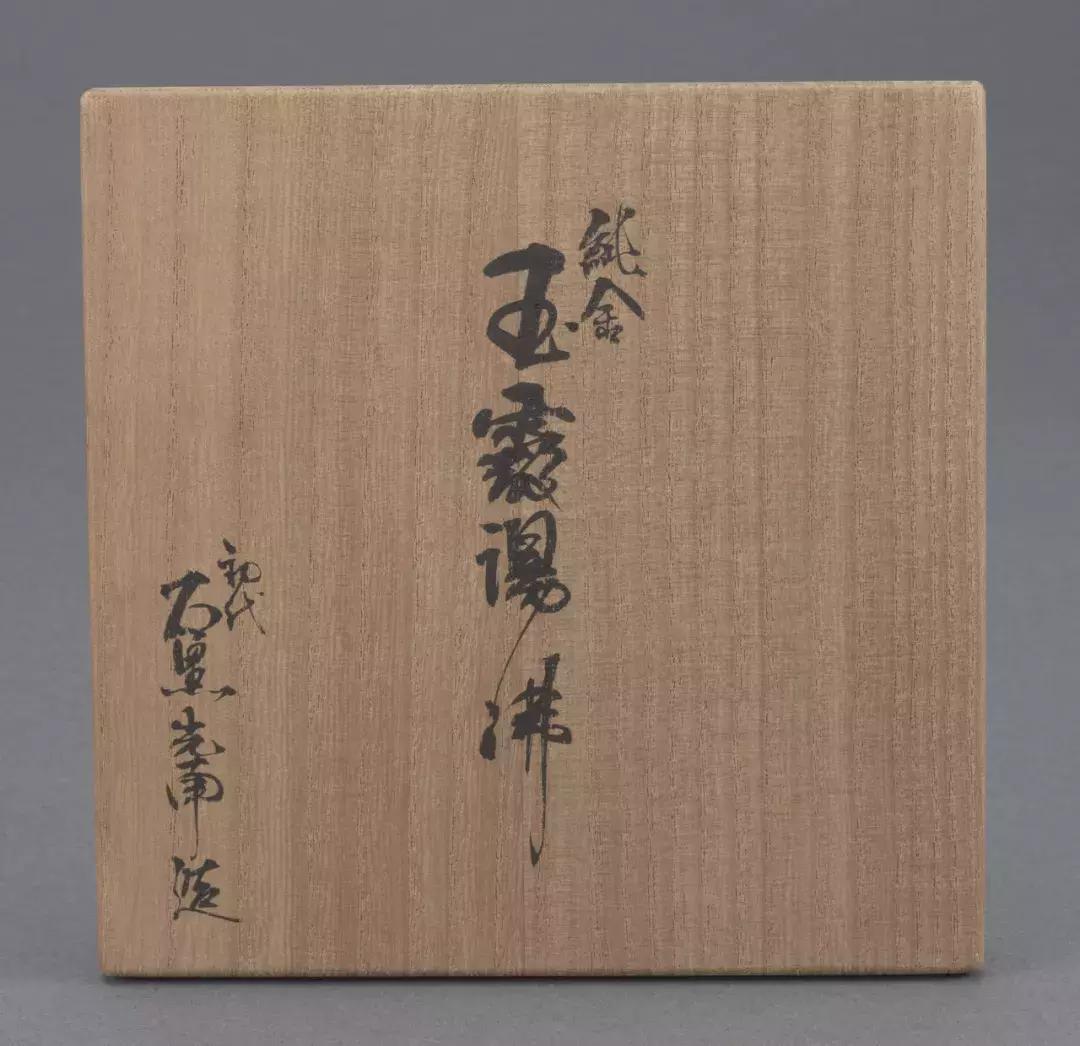 純金
玉露湯沸
初代
石黒光南造